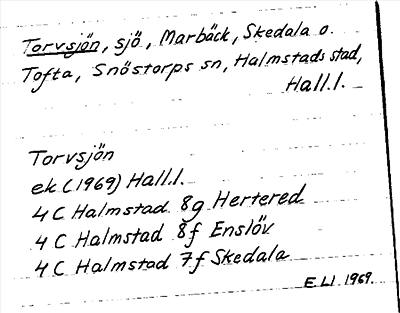 Torvsjön, sjö, Marbäck, Skedala o.
Tofta, Snöstorps sn, Halmstads stad,
Hall.l.
Torvsjön
ek (1969) Hall.l.
4 C Halmstad 8g Hertered
4 C Halmstad 8f Enslöv
4 C Halmstad 7f Skedala
E.Ll. 1969.